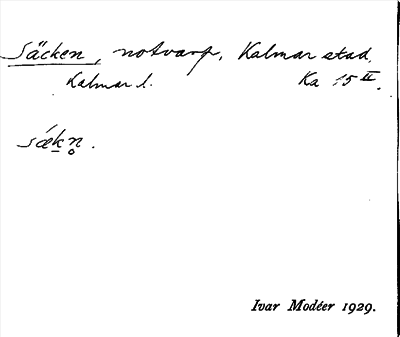 Säcken, notvarp, Kalmar stad,
Kalmar l. Ka 15 II.
sǽk̲n̥.
Ivar Modéer 1929.